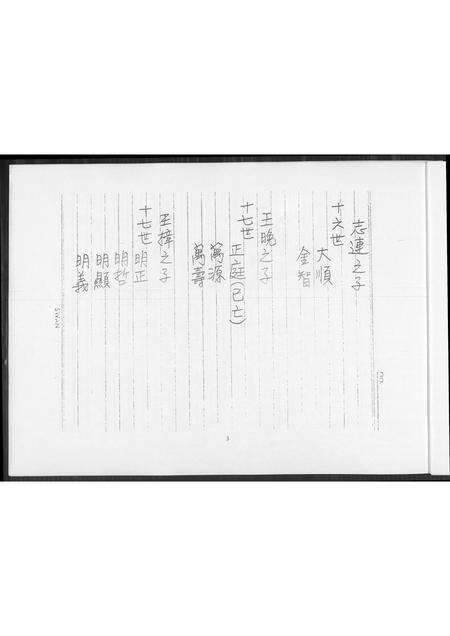 志連之子
十六世
大順
金智
王晚之子
十七世
正庭(已亡)
萬源
萬壽
王擇之子
十七世 明正
明哲
明顯
明義
3